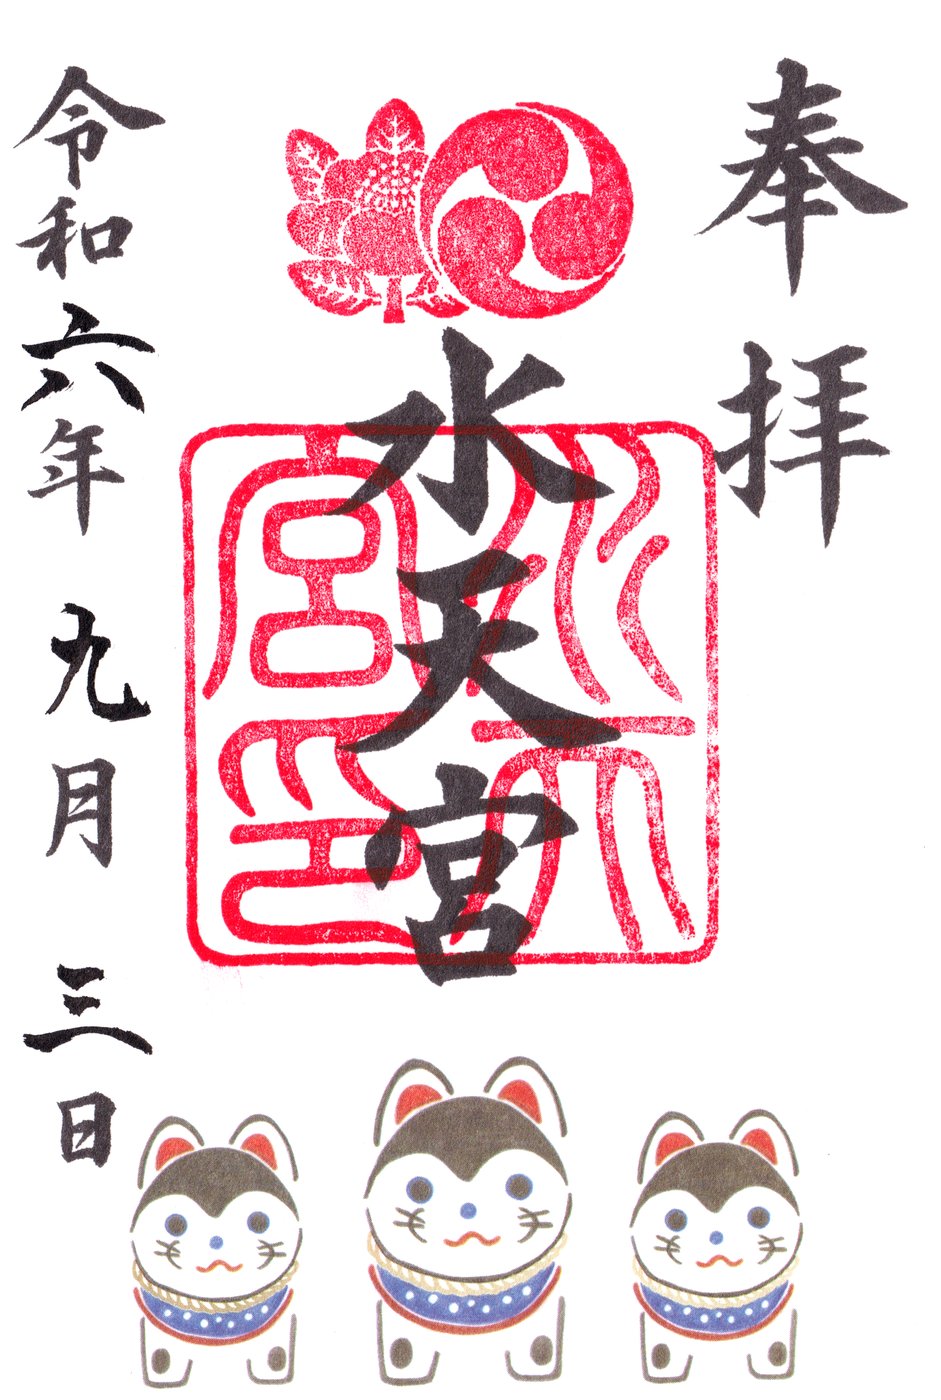 奉拝
水天宮
水天宮印
令和六年九月三日